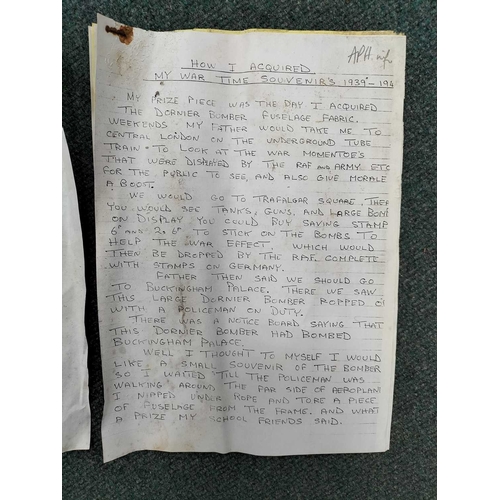 HOW I ACQUIRED
MY WAR TIME SOUVENIR'S 1939 - 194
MY PRIZE PIECE WAS THE DAY I ACQUIRED
THE DORNIER BOMBER FUSELAGE FABRIC.
WEEKENDS MY FATHER WOULD TAKE ME TO
CENTRAL LONDON ON THE UNDERGROUND TUBE
TRAIN TO LOOK AT THE WAR MOMENTOES
THAT WERE DISPLAYED BY THE RAF AND ARMY ETC
FOR THE PUBLIC TO SEE, AND ALSO GIVE MORALE
A BOOST.
WE WOULD GO TO TRAFALGAR SQUARE, THER
YOU WOULD SEE TANKS, GUNS, AND LARGE BOMB
ON DISPLAY. YOU COULD BUY SAVING STAMP
6ᴰ AND 2s 6ᴰ TO STICK ON THE BOMBS TO
HELP THE WAR EFFECT, WHICH WOULD
THEN BE DROPPED BY THE RAF. COMPLETE
WITH STAMPS ON GERMANY.
FATHER THEN SAID WE SHOULD GO
TO BUCKINGHAM PALACE. THERE WE SAW
THIS LARGE DORNIER BOMBER ROPPED O
WITH A POLICEMAN ON DUTY.
THERE WAS A NOTICE BOARD SAYING THAT
THIS DORNIER BOMBER HAD BOMBED
BUCKINGHAM PALACE.
WELL I THOUGHT TO MYSELF I WOULD
LIKE A SMALL SOUVENIR OF THE BOMBER
SO I WAITED TILL THE POLICEMAN WAS
WALKING AROUND THE FAR SIDE OF AEROPLAN
I NIPPED UNDER ROPE AND TORE A PIECE
OF FUSELAGE FROM THE FRAME. AND WHAT
A PRIZE MY SCHOOL FRIENDS SAID.